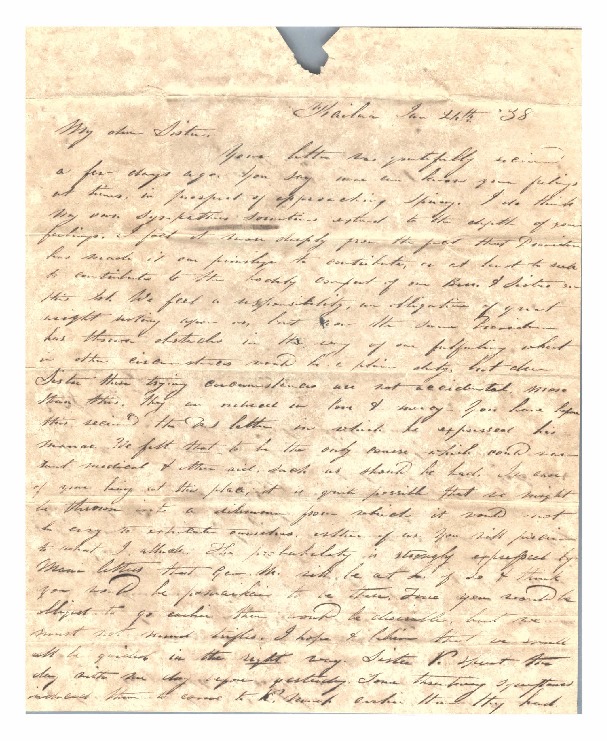 Kailua Jan 24th '38
My dear Sister,
Your letter was gratefully received
a few days ago. You say none can know your feelings
at times, in prospect of approaching I do think
my own sympathies sometimes extend to the depth of your
feelings. I feel it more deeply from the fact that Providence
has made it our privilege to contribute, or at least to seek
to contribute to the bodily comfort of our Bros. & Sisters in
this We feel a responsibility, an obligation of great
weight resting upon us, but now the same Providence
has thrown obstacles in the way of our fulfilling what
in other circumstances would be a plain duty, but dear
Sister these trying circumstances are not accidental more
than this. They are ordered in love & mercy. You have before
this received the Drs letter in which he expressed his
We felt that to be the only course which could
medical & other aid, such as should be had. In case
of your being at this place, it is quite possible that we might
be thrown into a dilemma from which it would not
be easy to extricate ourselves, either of us. You will perceive
to what I allude. The probability is strongly expressed by
letters that Gen. Me. will be at K. if so I think
you would be to be there. True you would be
obliged to go earlier than would be desirable, but we
must not mind trifles. I hope & believe that we would
all be guided in the right way. Sister P. spent the
day with me day before yesterday. Some threatening symptoms
induced them to come to K. much earlier than they had